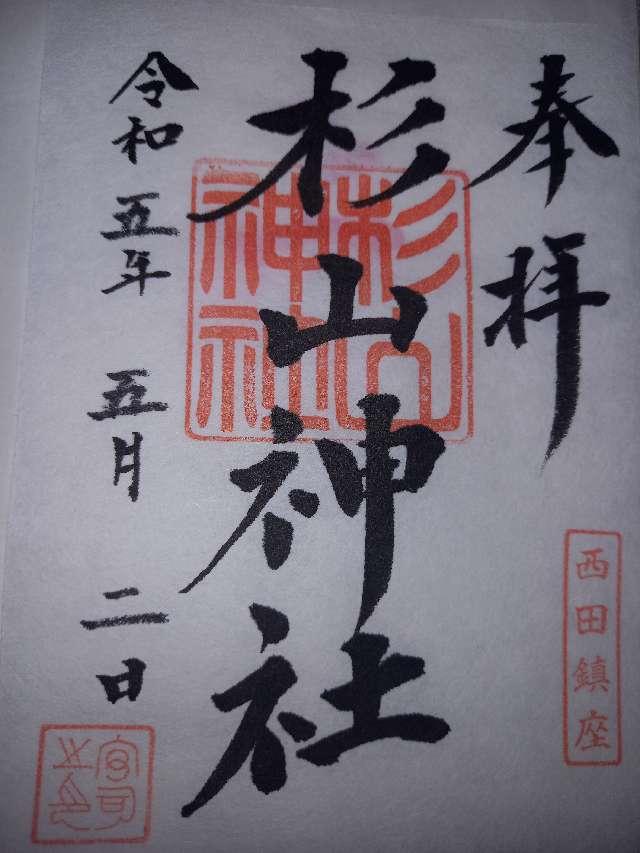 奉拝
西田鎮座
杉山神社
杉山神社
令和五年 五月 二日
宮司